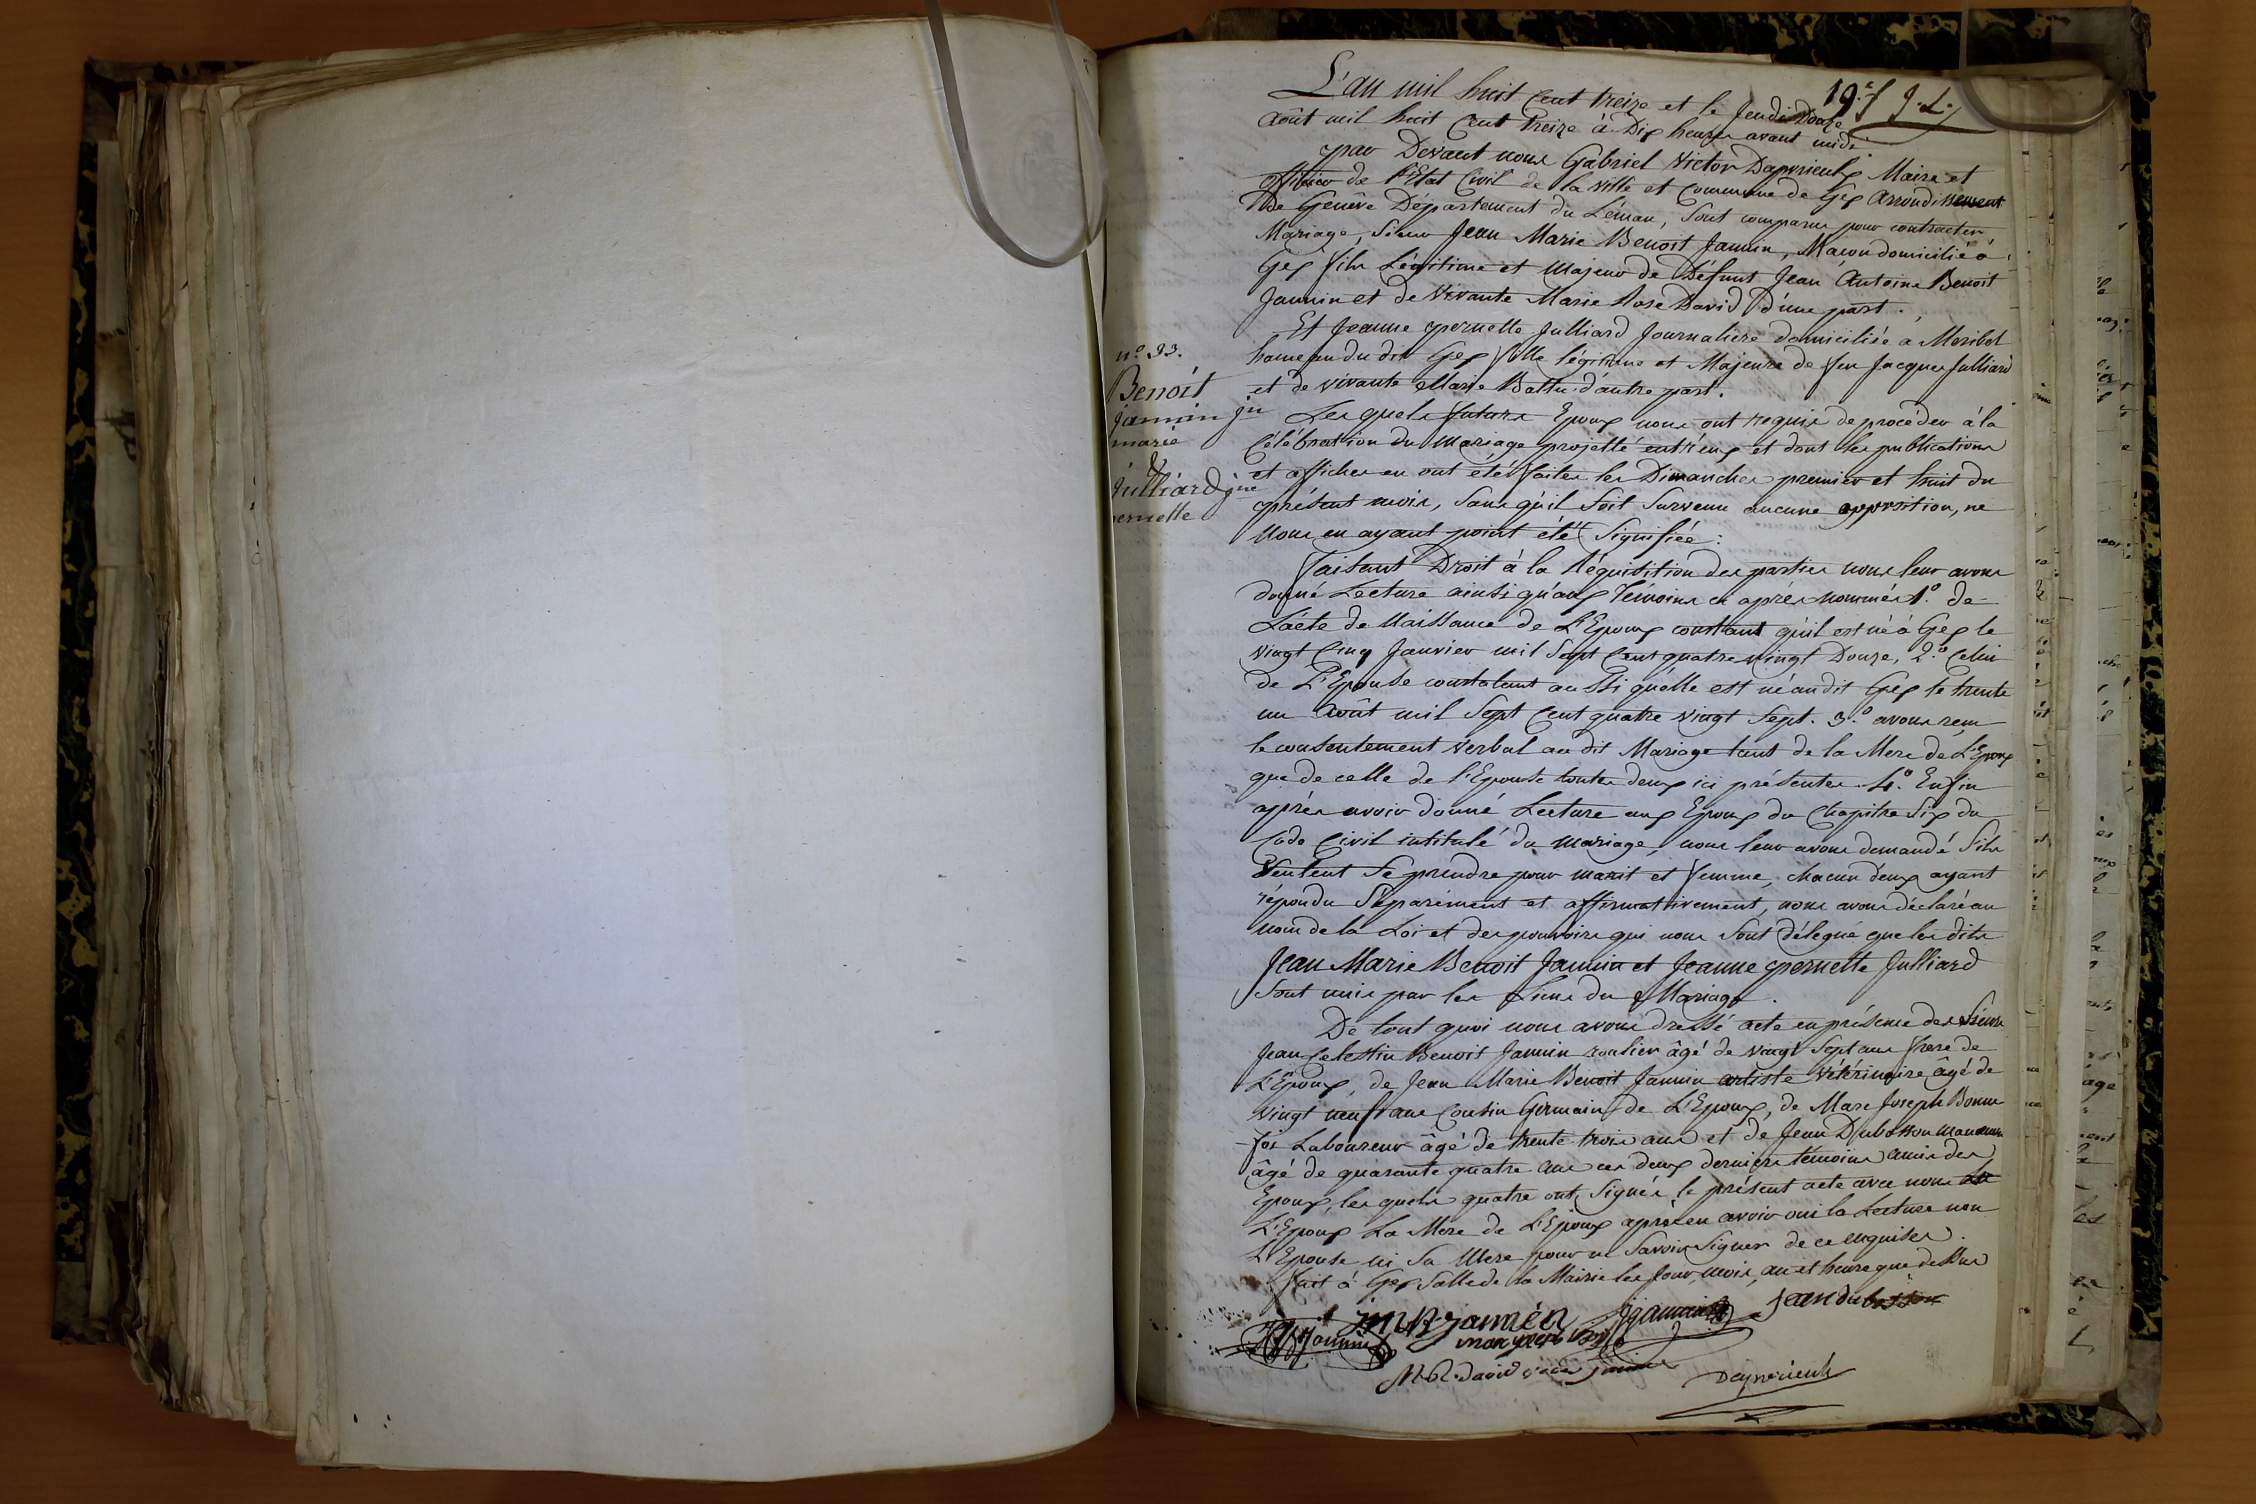 19.e f. J. L.
L'an mil huit Cent treize et le Jeudi Douze
Août mil huit Cent treize à Dix heures avant midi
par Devant nous Gabriel Victor Dapvrieulx Maire et
officier de l'Etat Civil de la ville et Commune de Gex Arrondissement
De Genève Département du Léman, Sont comparus pour contracter
Mariage, Sieur Jean Marie Benoit Jannin, Maçon domicilié à
Gex fils Légitime et Majeur de Défunt Jean Antoine Benoit
Jannin et de vivante Marie Rose David d'une part.
Et Jeanne pernette Julliard Journalière domiciliée a Meribel
hameau du dit Gex fille légitime et Majeure de feu Jacques Julliard
et de vivante Marie Battu d'autre part.
n.o 33.
Benoit
jannin jn
marie
&
Julliard jne
pernette
Les quels futurs Epoux nous ont requis de procéder à la
Célébration du Mariage projetté entr'eux et dont les publications
et affiches en ont été faites les Dimanches premier et huit du
présent mois, Sans qu'il Soit Survenu aucune opposition, ne
Nous en ayant point été Signifiée:
faisant Droit à la Réquisition des parties nous leur avons
donné Lecture ainsi qu'aux Témoins ci après nommés 1.o de
L'acte de Naissance de L'Epoux constant qu'il est né à Gex le
vingt Cinq Janvier mil Sept Cent quatre vingt Douze, 2.o Celui
de L'Epouse constatant aussi qu'elle est né au dit Gex le trente
un Août mil Sept Cent quatre vingt Sept. 3.o avons reçu
le consentement verbal au dit Mariage tant de la Mere de L'Epoux
que de celle de l'Epouse toutes deux ici présentes. 4.o Enfin
après avoir donné Lecture aux Epoux du Chapitre Six du
Code Civil intitulé du Mariage, nous leur avons demandé S'ils
Veulent Se prendre pour marit et femme, chacun d'eux ayant
répondu Séparément et affirmativement, nous avons déclaré au
nom de la Loi et des pouvoirs qui nous Sont délegué que les dits
Jean Marie Benoit Jannin et Jeanne pernette Julliard
Sont unis par les Liens du Mariage.
De tout quoi nous avons dressé acte en présence des Sieurs
Jean Celestin Benoit Jannin roulier âgé de vingt Sept ans frere de
L'Epoux, de Jean Marie Benoit Jannin artiste vétérinaire âgé de
vingt neuf ans Cousin Germain de L'Epoux, de Marc Joseph Bonne
foi Laboureur âgé de trente trois ans et de Jean Dubosson
âgé de quarante quatre ans ces deux derniers témoins amis des
Epoux, les quels quatre ont Signés le présent acte avec nous
L'Epoux La Mere de L'Epoux après en avoir oui la Lecture non
L'Epouse ni Sa Mere pour ne Savoir Signer de ce enquises.
fait à Gex Salle de la Mairie les Jour, mois, an et heure que dessus
jmB jannin Jjannin Jean dubosson
Jannin
M.R. david
Dapvrieulx